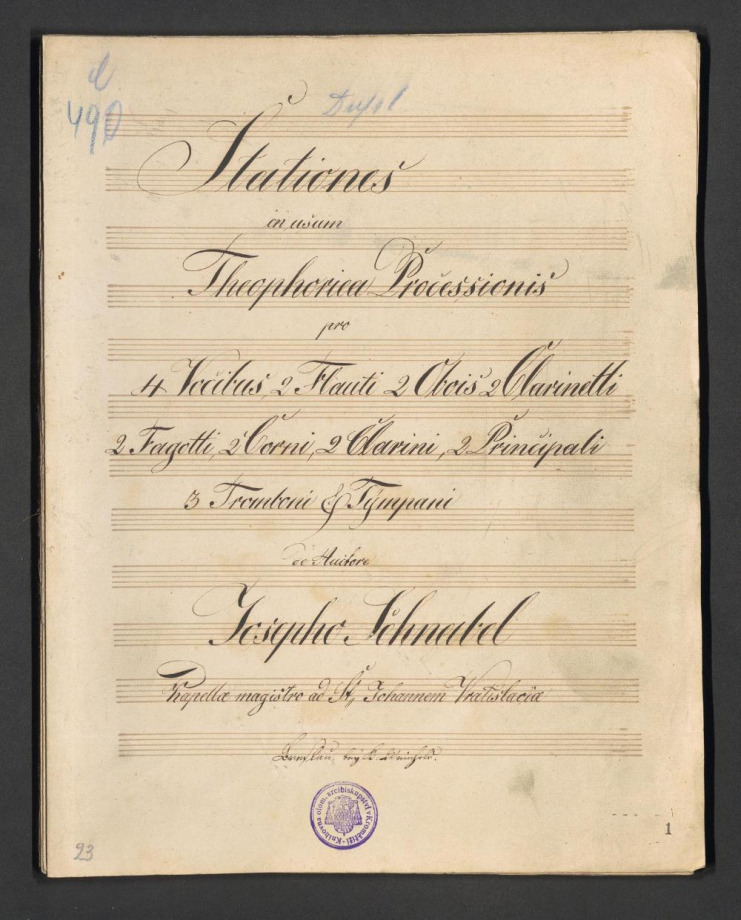 d
490
Stationes
in usum
Theophorica Processionis
pro
4 Vocibus, 2 Flauti 2 Obois 2 Clarinetti
2 Fagotti, 2 Corni, 2 Clarini, 2 Principali
3 Tromboni & Tympani
de Auctore
Josepho Schnabel
Kapellæ magistro ad St. Johannem Vratislaviæ
Breslau, bey
Knihovna olom. arcibiskupství v Kroměříži
23
1